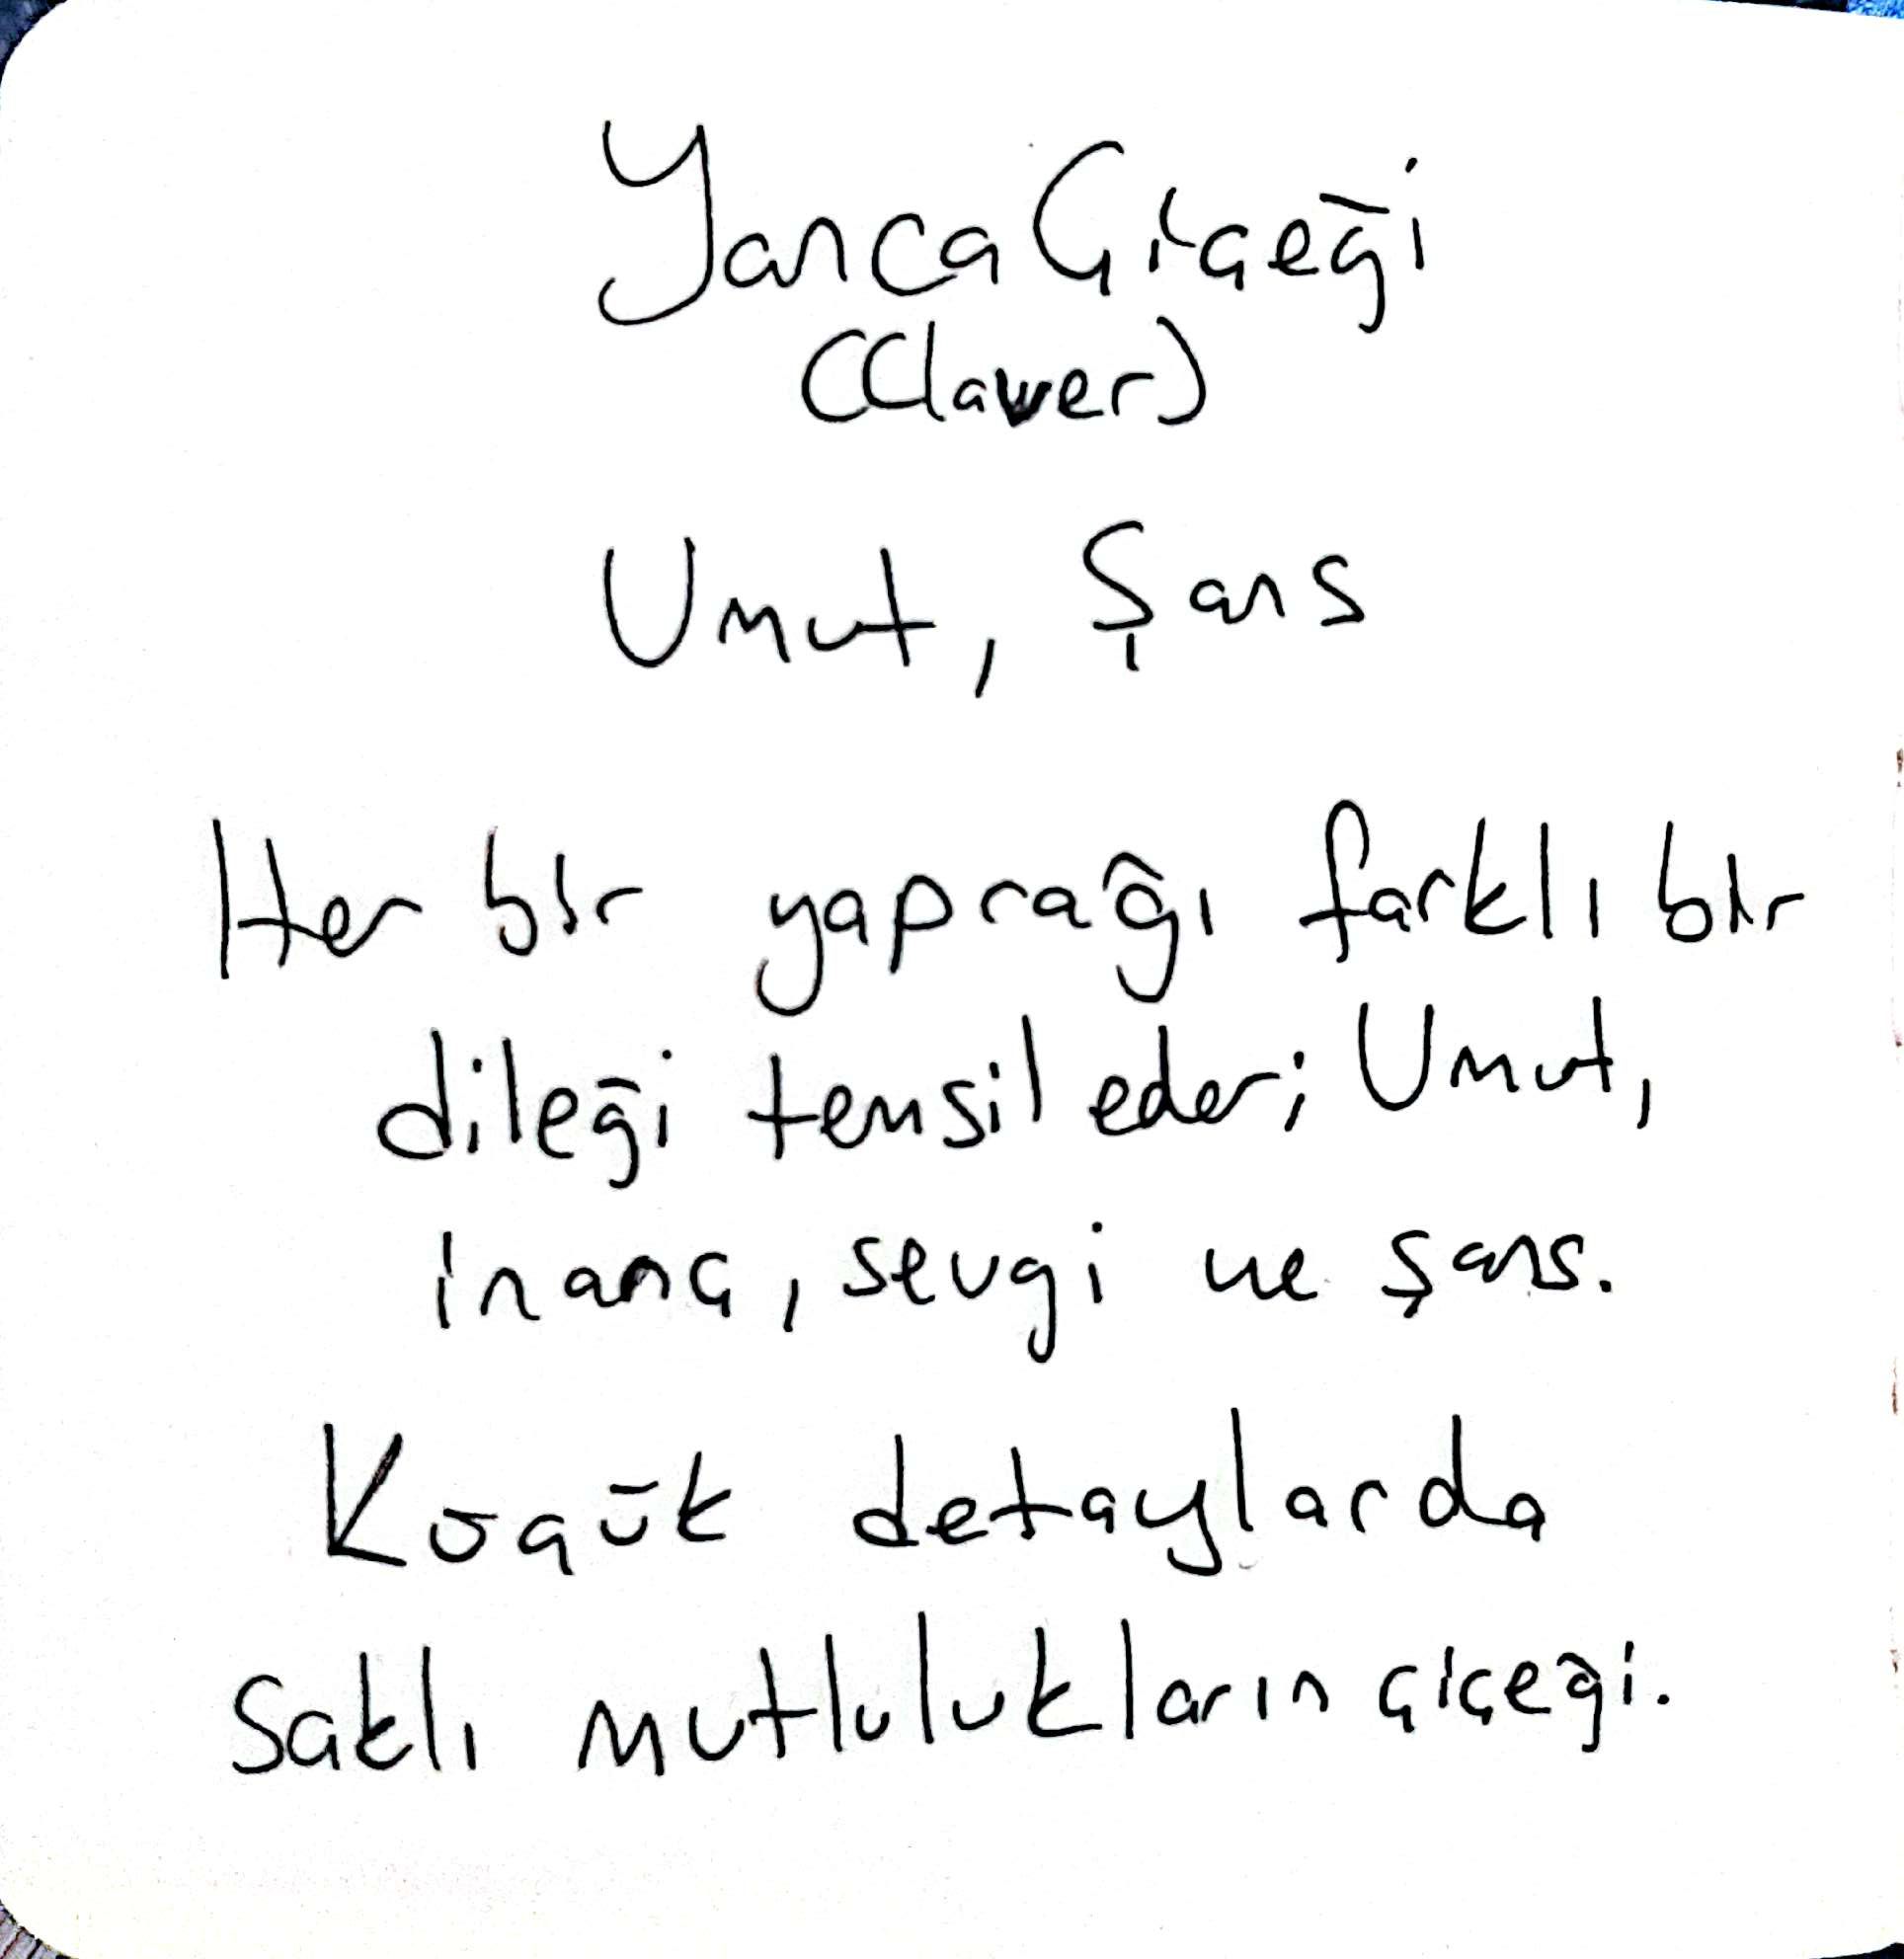 Yonca Çiçeği
(Clawer)
Umut, Şans
Her bir yaprağı farklı bir
dileği temsil eder; Umut,
inanç, sevgi ve şans.
Küçük detaylarda
Saklı mutlulukların çiçeği.